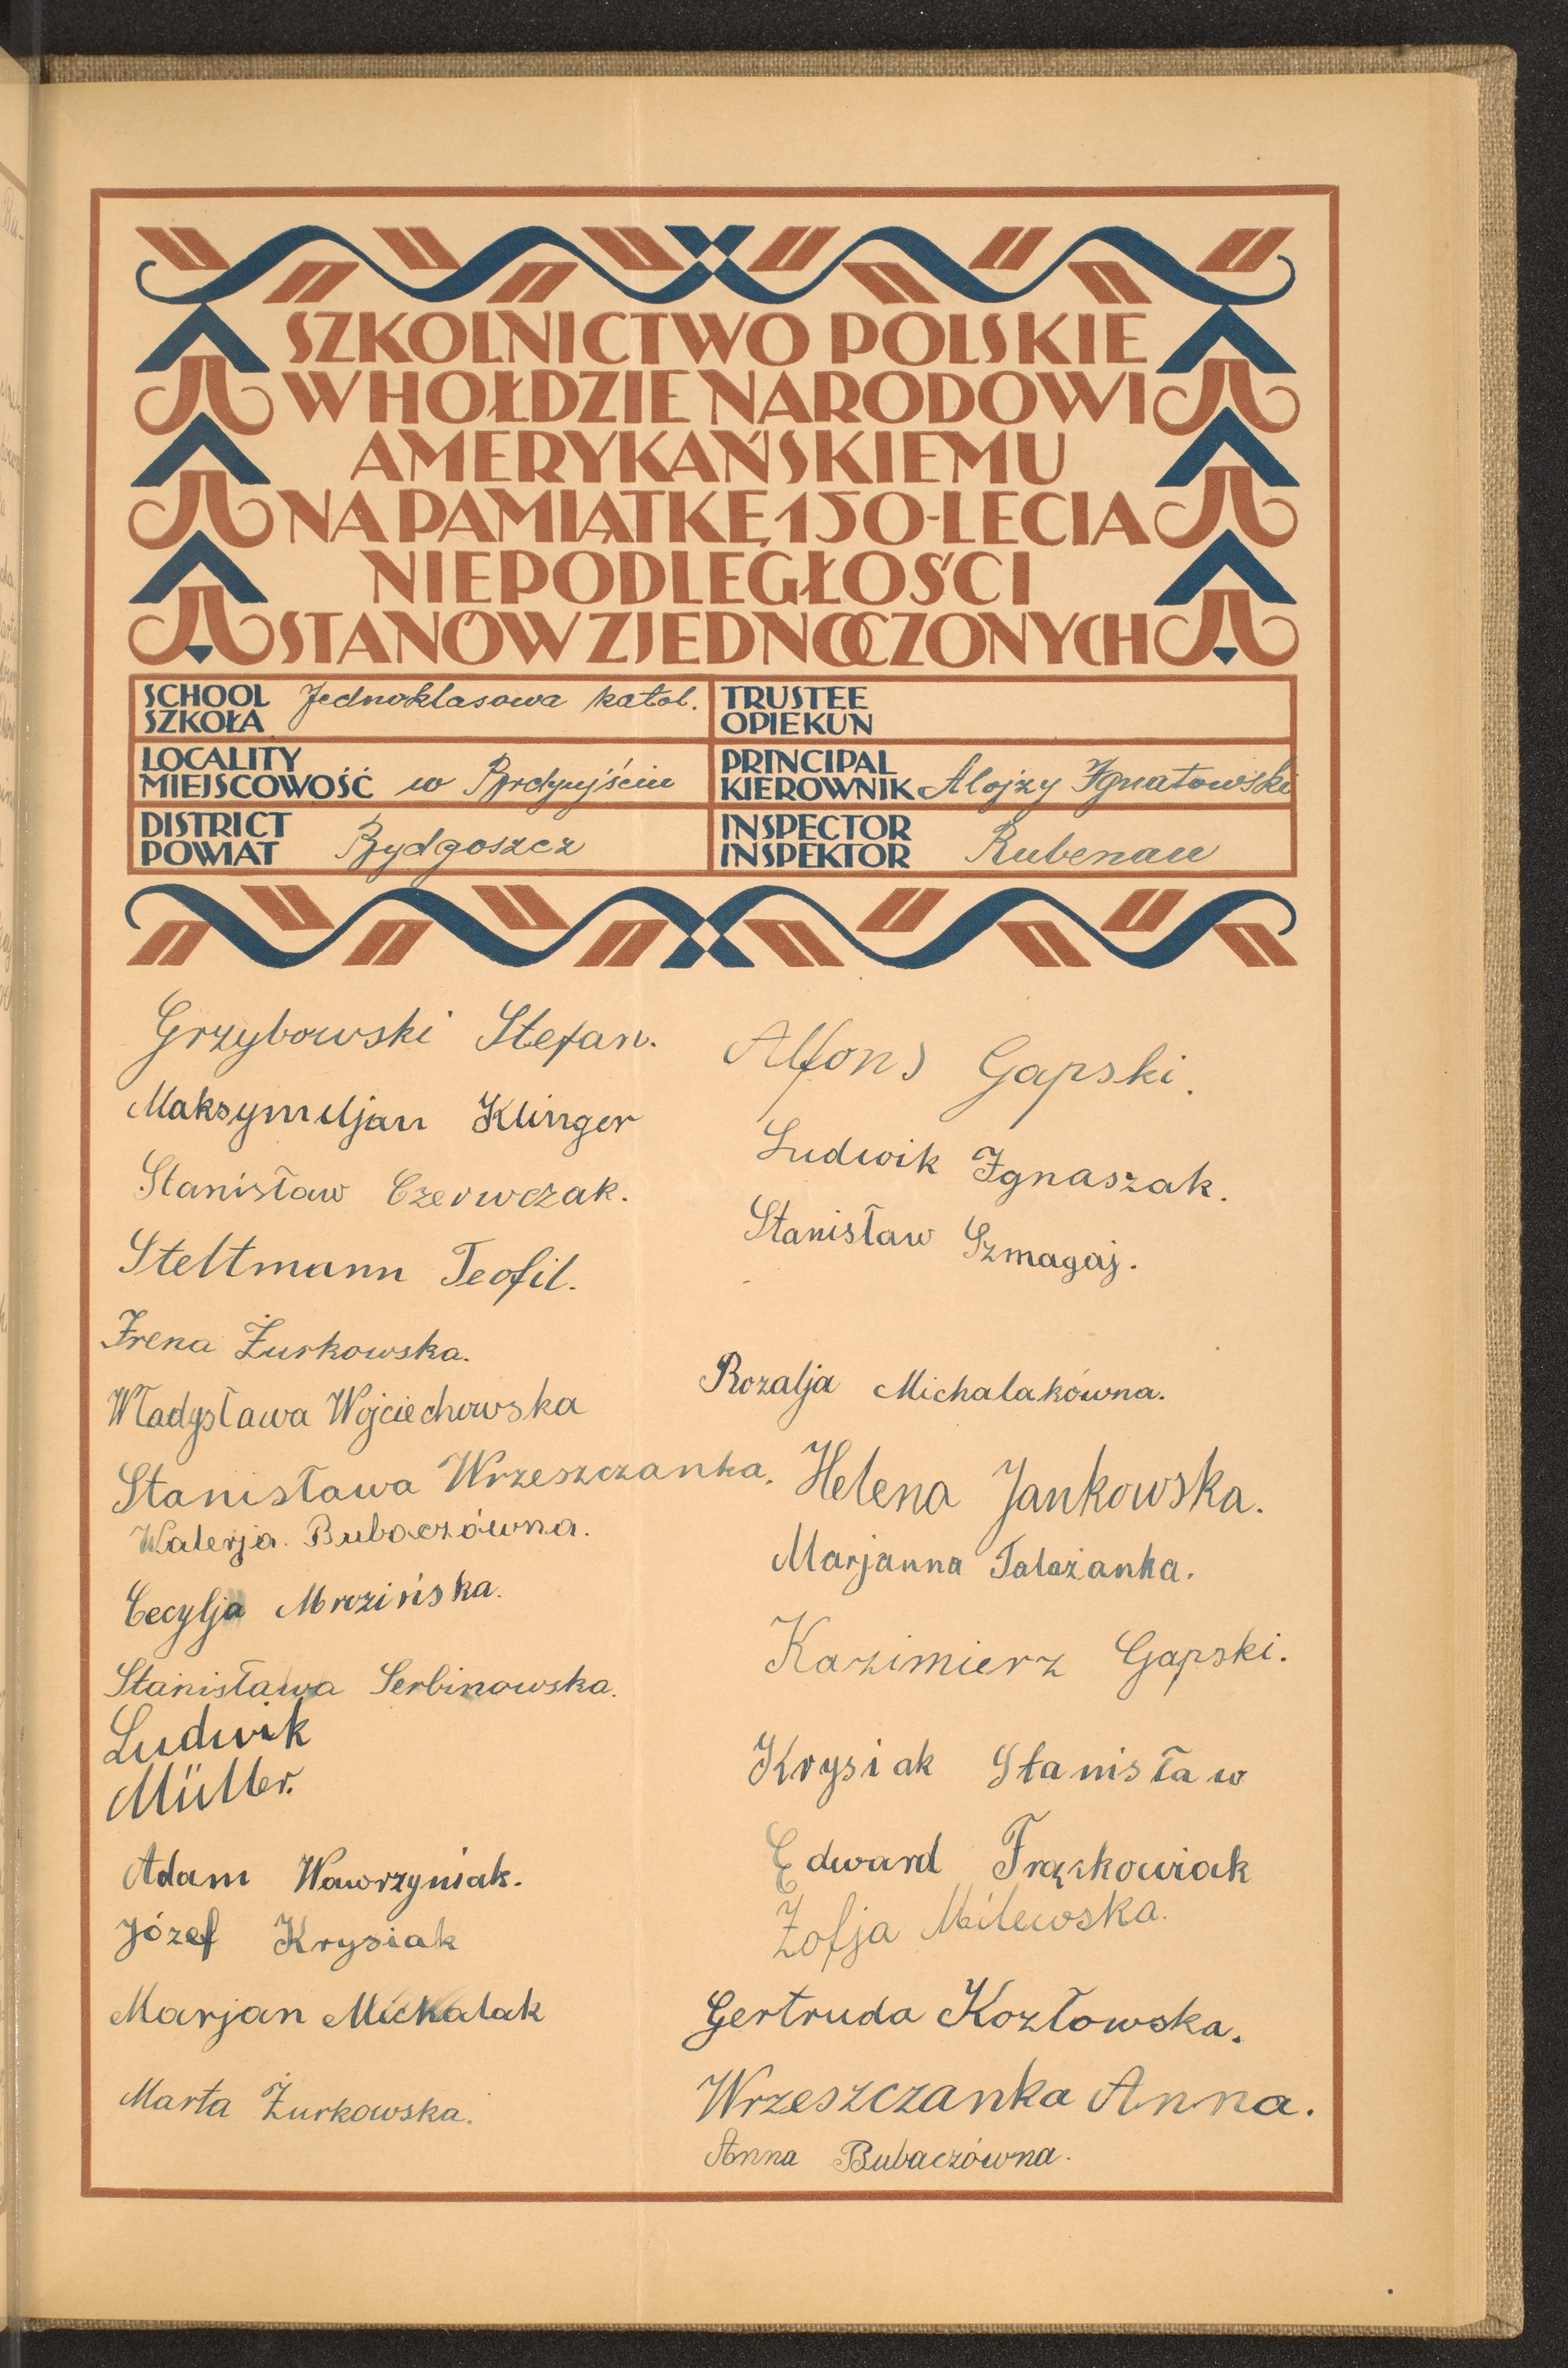 SZKOLNICTWO POLSKIE
W HOŁDZIE NARODOWI
AMERYKAŃSKIEMU
NA PAMIĄTKĘ 150-LECIA
NIEPODLEGŁOŚCI
STANÓW ZJEDNOCZONYCH
SCHOOL
SZKOŁA Jednoklasowa katol.
TRUSTEE
OPIEKUN
LOCALITY
MIEJSCOWOŚĆ w
PRINCIPAL
KIEROWNIK Alojzy Ignatowski
DISTRICT
POWIAT Bydgoszcz
INSPECTOR
INSPEKTOR Rubenau
Grzybowski Stefan.
Maksymiljan Klinger
Stanisław Czerwczak.
Steltmann Teofil.
Irena Żurkowska.
Władysława Wojciechowska
Stanisława Wrzeszczanka.
Walerja. Bubaczówna.
Cecylja Mrozińska.
Stanisława Serbinowska.
Ludwik
Müller.
Adam Wawrzyniak.
Józef Krysiak
Marjan Michalak
Marta Żurkowska.
Alfons Gapski.
Ludwik Ignaszak.
Stanisław Szmagaj.
Rozalja Michalakówna.
Helena Jankowska.
Marjanna Talażanka.
Kazimierz Gapski.
Krysiak Stanisław
Edward Frąskowiak
Zofja Milewska.
Gertruda Kozłowska.
Wrzeszczanka Anna.
Anna Bubaczówna.